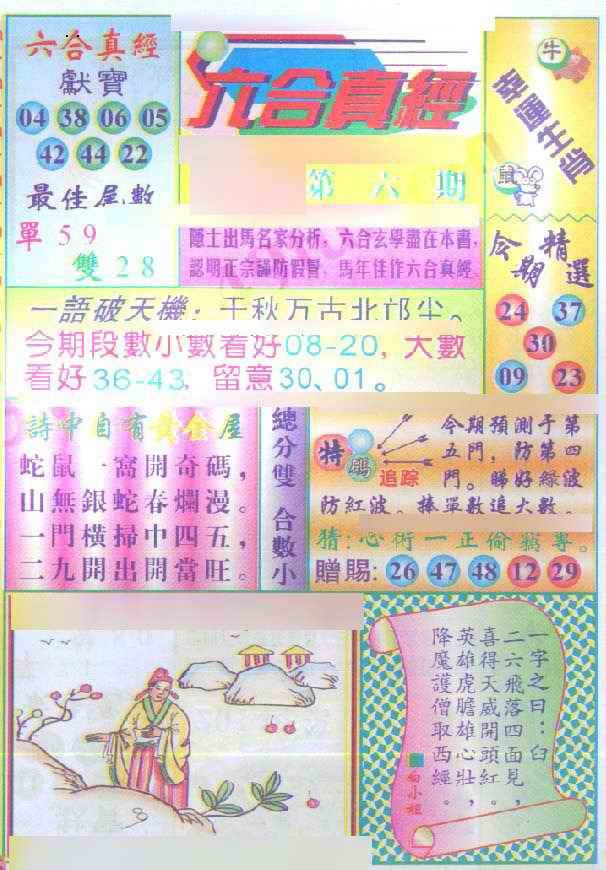 六合真經
獻寶
04 38 06 05
42 44 22
最佳尾數
單59
雙28
六合真經
第六期
隱士出馬名家分析，六合玄學盡在本書，
認明正宗謹防假冒，馬年佳作六合真經。
牛
幸運生肖
鼠
今期精選
24 37
30
09 23
一語破天機：千秋万古北邙尘。
今期段數小數看好08-20，大數
看好36-43，留意30、01。
詩中自有黃金屋
蛇鼠一窩開奇碼，
山無銀蛇春爛漫。
一門橫掃中四五，
二九開出開當旺。
總分雙 合數小
特碼
追踪
今期預測于第
五門，防第四
門。睇好綠波
防紅波。捧單數追大數。
猜：心術一正偷竊專。
贈賜：26 47 48 12 29
一字之曰：臼
二六飛落四面見，
喜得天威開頭紅。
英雄虎膽雄心壯，
降魔護僧取西經。
白小姐
8